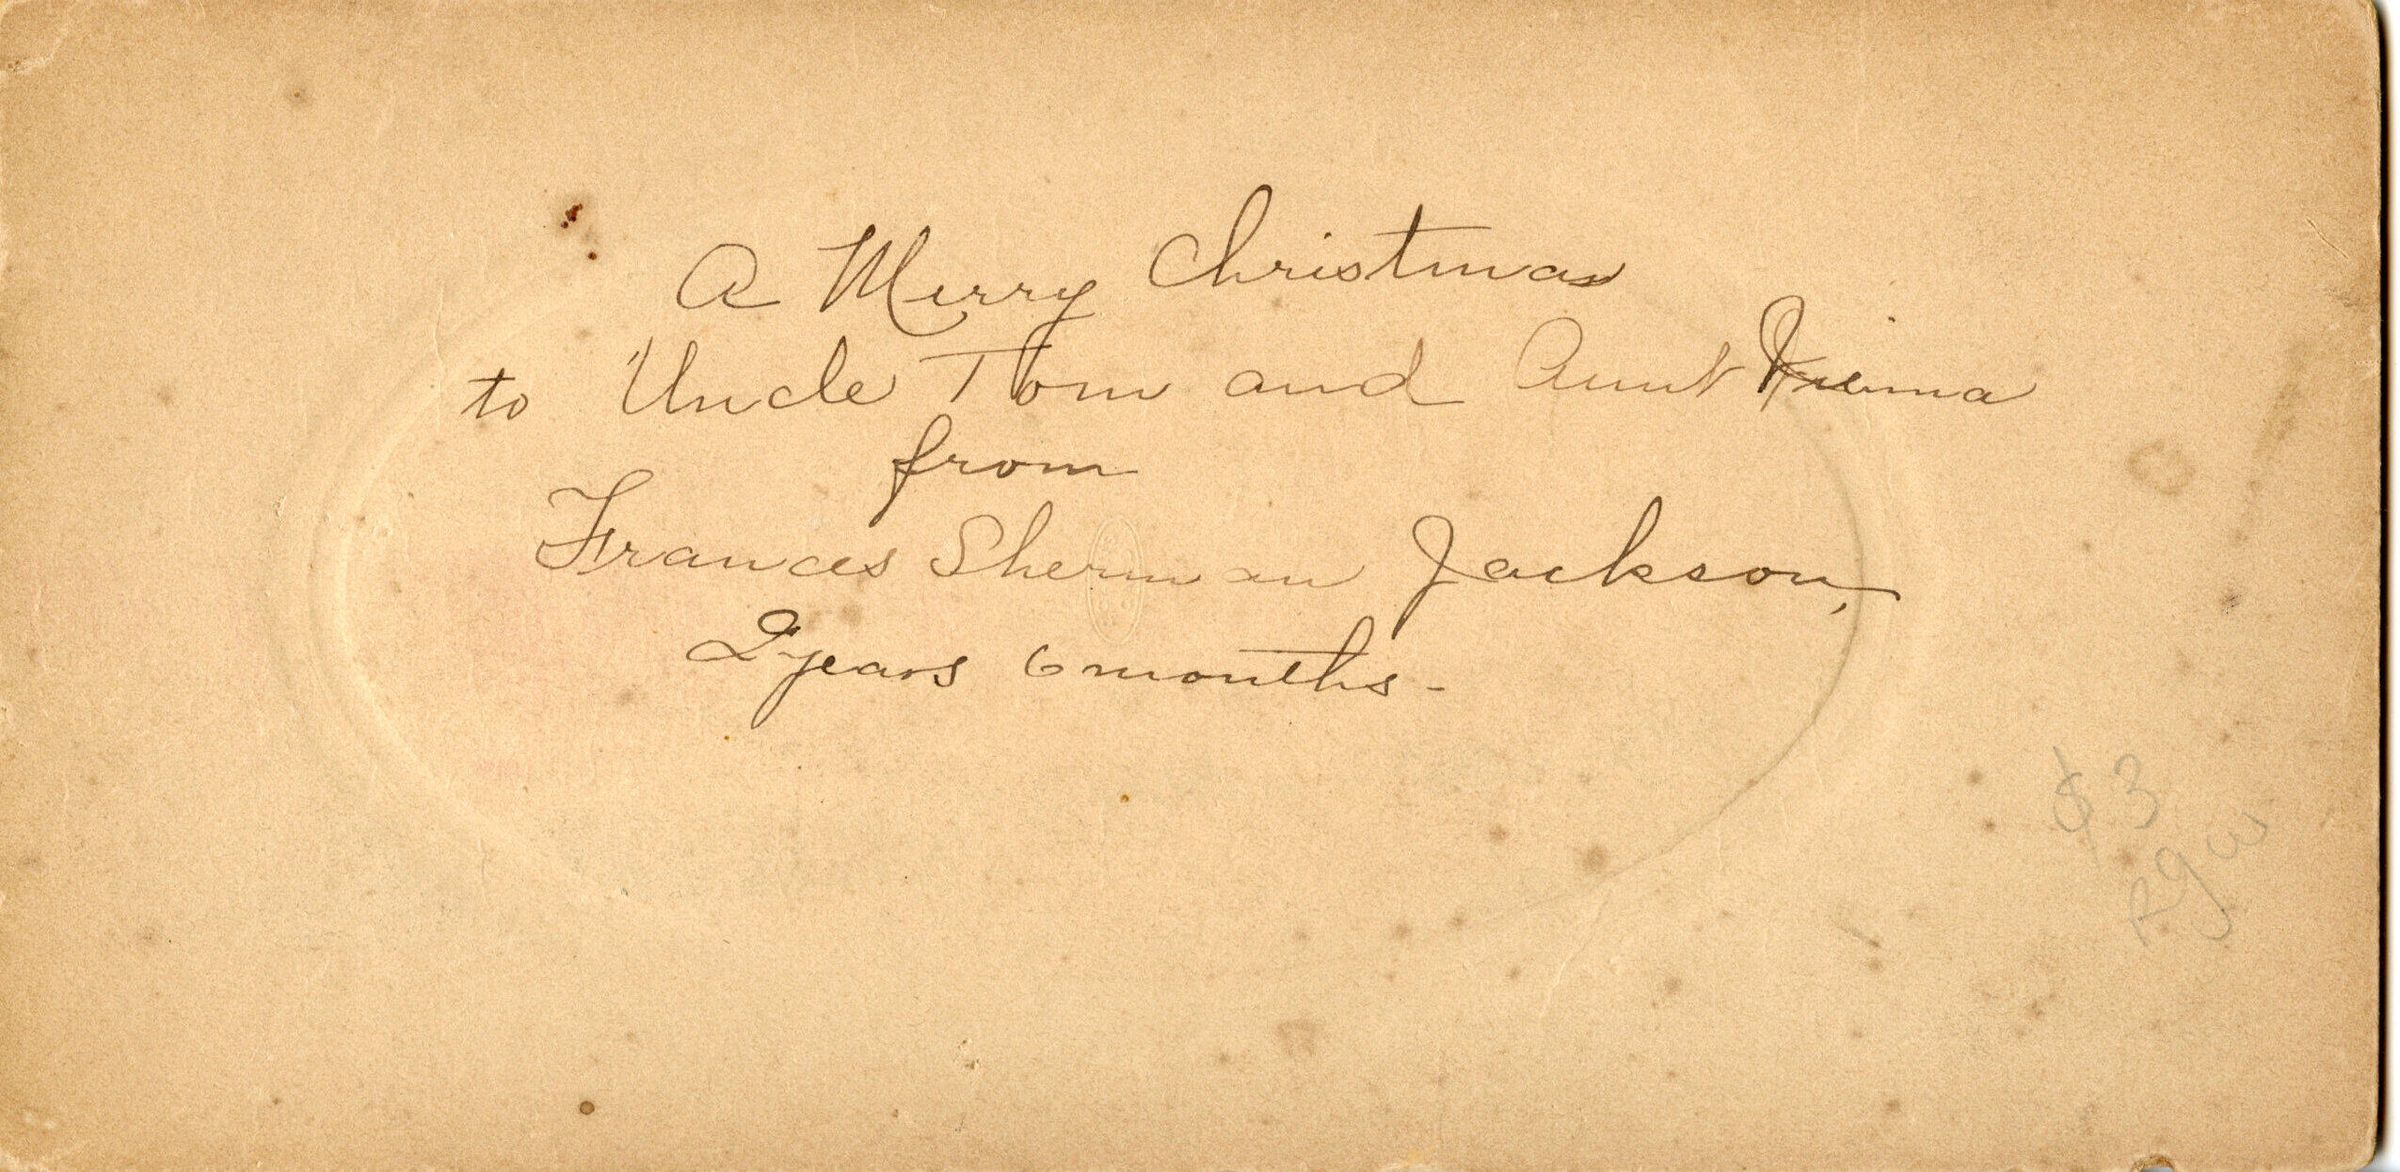 A Merry Christmas
to Uncle Tom and Aunt
from
Frances Sherman Jackson,
2 years 6 months -
$3